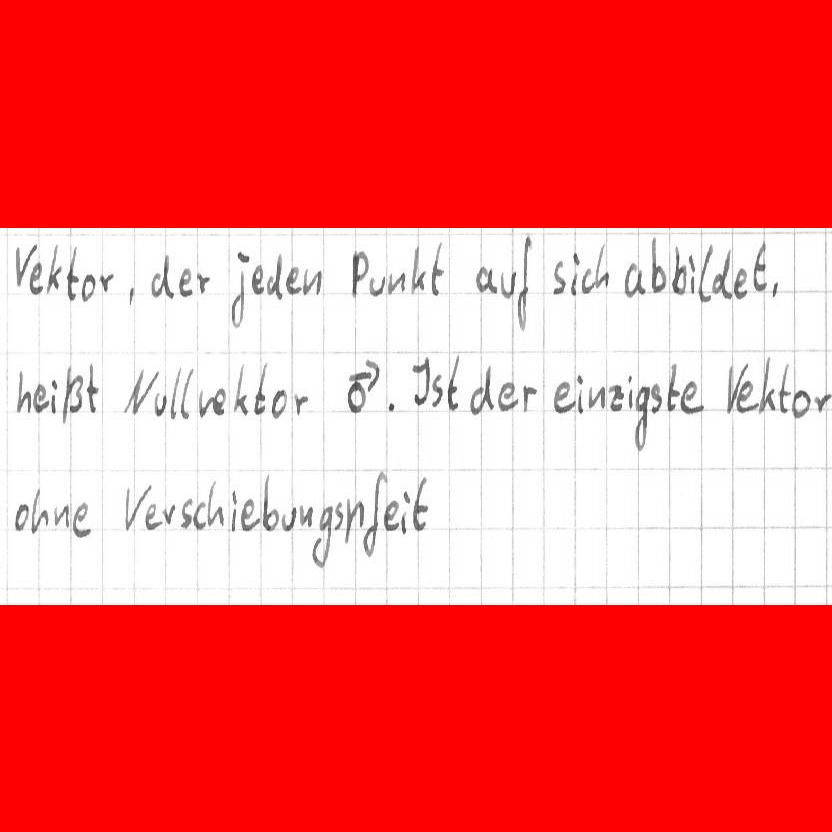 Vektor, der jeden Punkt auf sich abbildet,
heißt Nullvektor o⃗. Ist der einzigste Vektor
ohne Verschiebungspfeit